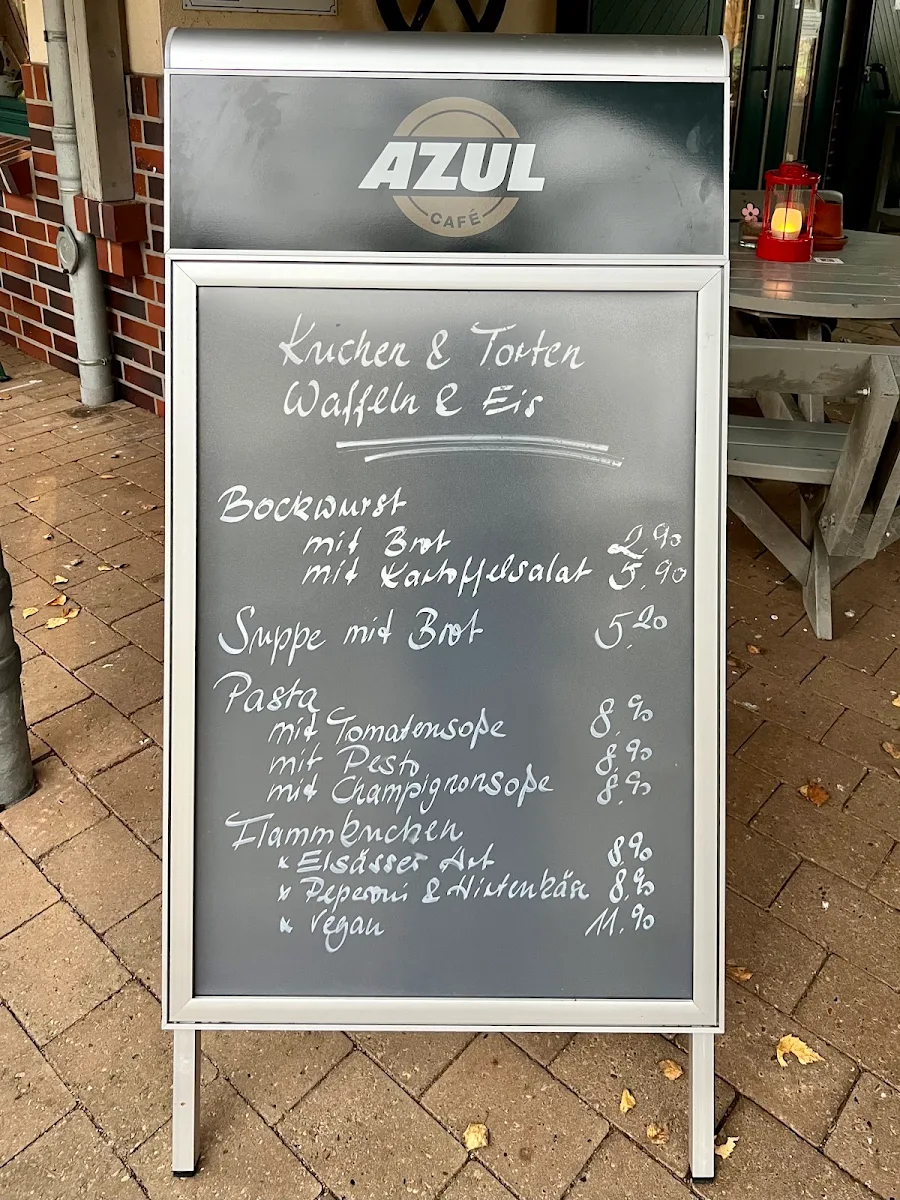 AZUL
CAFÉ
Kuchen & Torten
Waffeln & Eis
Bockwurst
mit Brot 2,90
mit Kartoffelsalat 5,90
Suppe mit Brot 5,20
Pasta
mit Tomatensoße 8,90
mit Pesto 8,90
mit Champignonsoße 8,90
Flammkuchen
* Elsässer Art 8,90
* Peperoni & Hirtenkäse 8,90
* Vegan 11,90